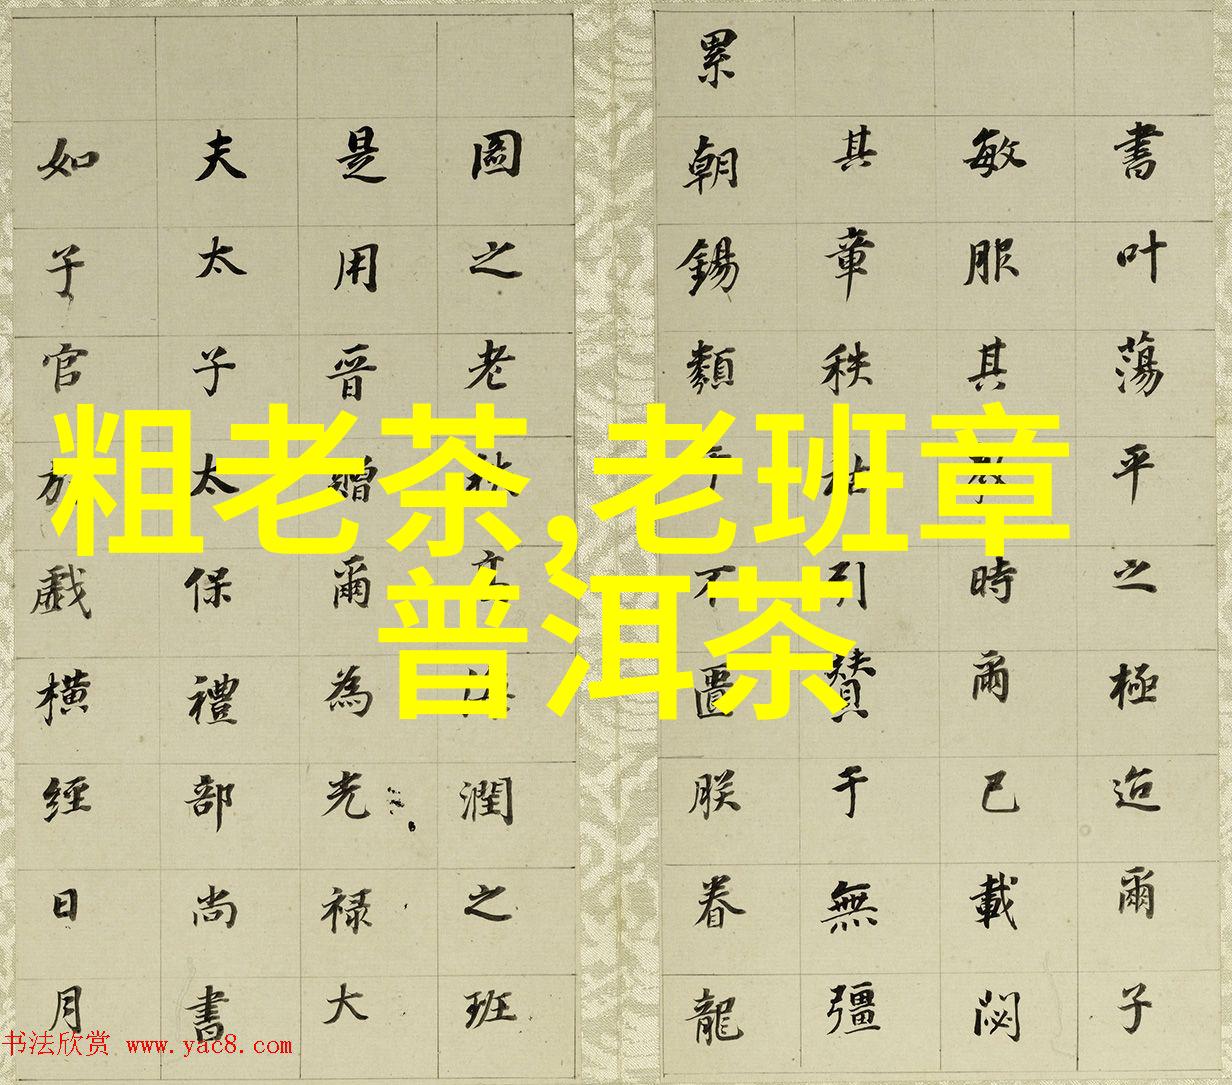 粗老茶,老班章
普洱茶
書叶蕩平之極迨爾子
敏服其教時爾已載閟
其章秩引贊于無彊
累朝錫類不匱朕眷龍
圖之老潤之班
是用晉贈爾為光禄大
夫太子太保禮部尚書
如子官於戲橫經日月
书法欣赏 www.yac8.com